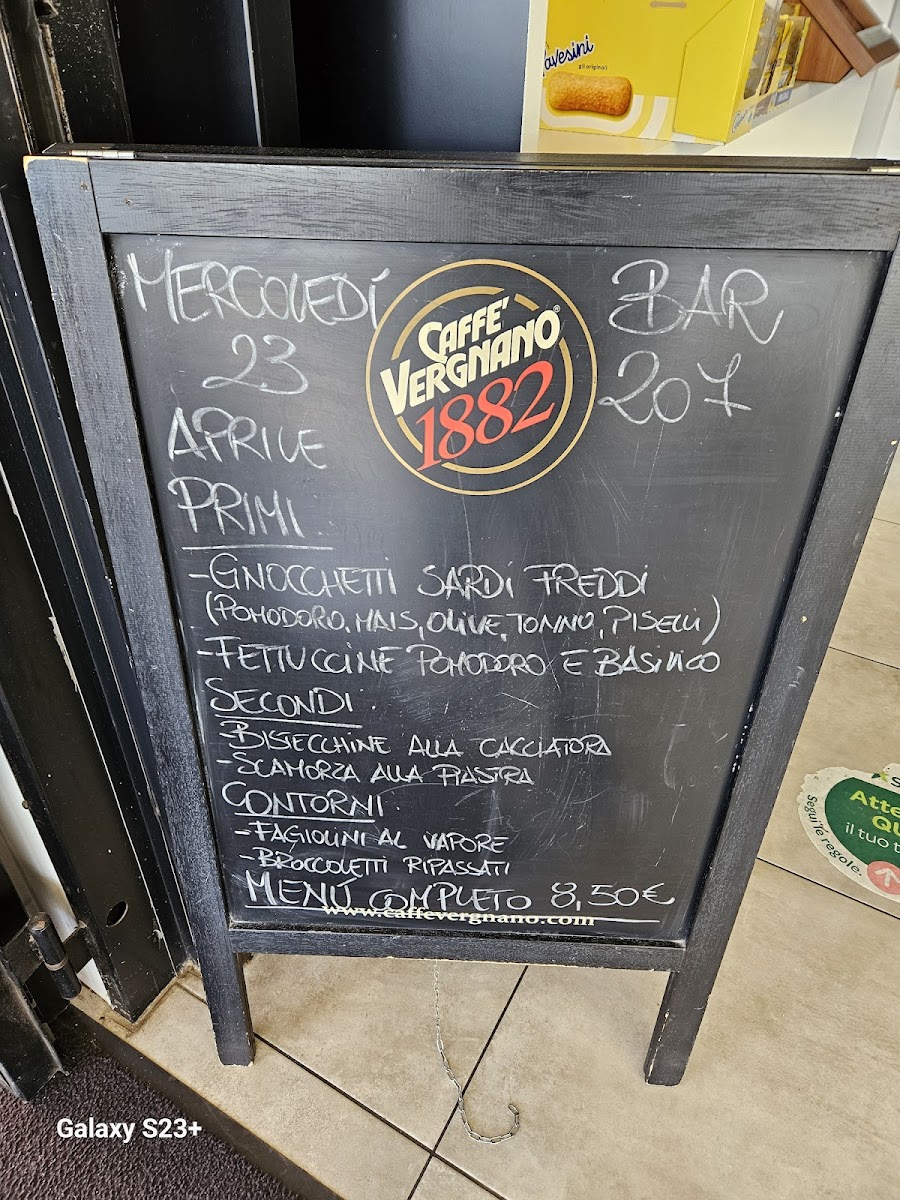 Pavesini
gli originali
MERCOLEDÍ
23
APRILE
CAFFE'
VERGNANO®
1882
BAR
207
PRIMI
-GNOCCHETTI SARDI FREDDI
(POMODORO, MAIS, OLIVE, TONNO, PISELLI)
-FETTUCCINE POMODORO E BASILICO
SECONDI
-BISTECCHINE ALLA CACCIATORA
-SCAMORZA ALLA PIASTRA
CONTORNI
-FAGIOLINI AL VAPORE
-BROCCOLETTI RIPASSATI
MENÙ COMPLETO 8,50€
www.caffevergnano.com
Segui le regole.
il tuo
Galaxy S23+